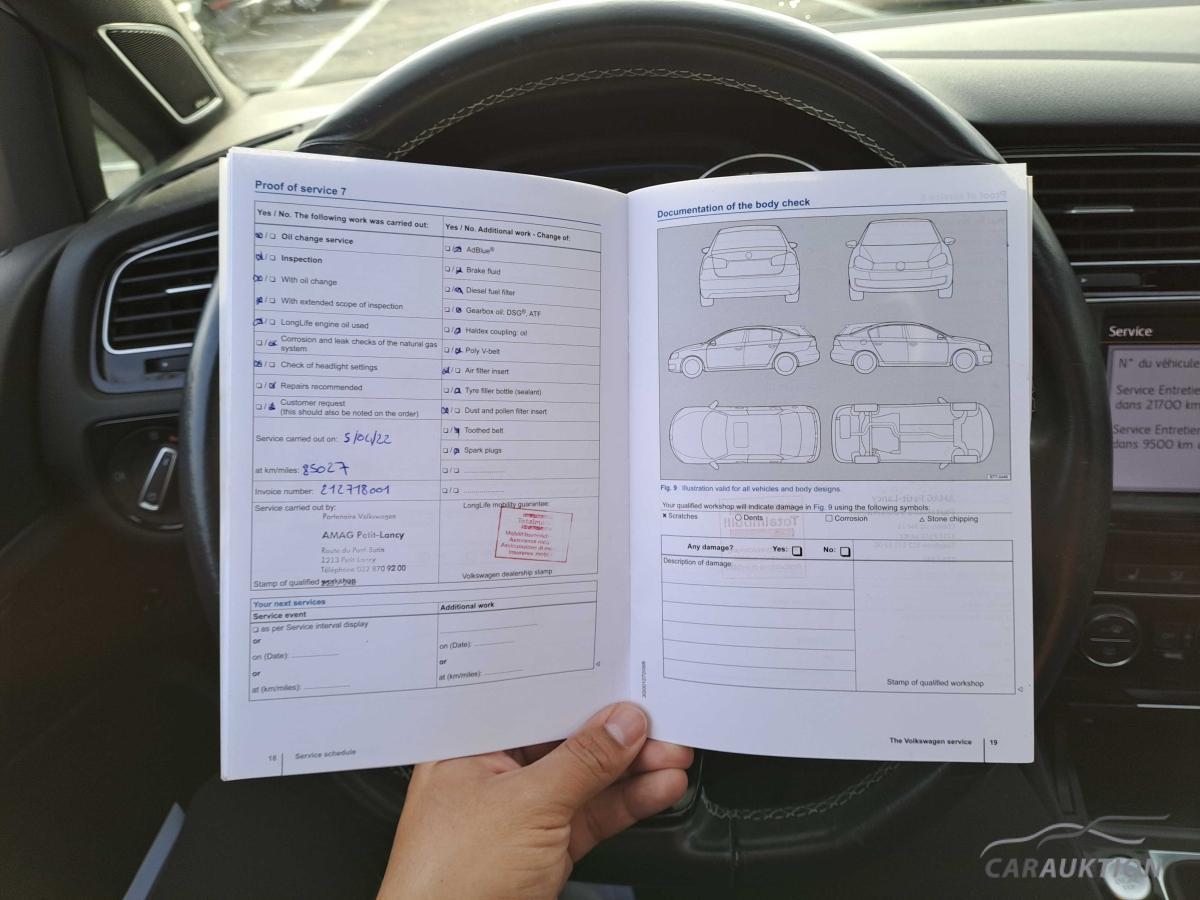 Proof of service 7
Yes / No. The following work was carried out:
Oil change service
Inspection
With oil change
With extended scope of inspection
LongLife engine oil used
Corrosion and leak checks of the natural gas
system
Check of headlight settings
Repairs recommended
Customer request
(this should also be noted on the order)
Service carried out on: 5/04/22
at km/miles: 85027
Invoice number: 212718001
Service carried out by:
Partenaire Volkswagen
AMAG Petit-Lancy
Route du Pont-Butin
1213 Petit-Lancy
Téléphone 022 870 92 00
Stamp of qualified workshop
Yes / No. Additional work - Change of:
AdBlue®
Brake fluid
Diesel fuel filter
Gearbox oil: DSG®, ATF
Haldex coupling: oil
Poly V-belt
Air filter insert
Tyre filler bottle (sealant)
Dust and pollen filter insert
Toothed belt
Spark plugs
LongLife mobility guarantee:
Volkswagen dealership stamp
Your next services
Service event
as per Service interval display
or
on (Date):
or
at (km/miles):
Additional work
on (Date):
or
at (km/miles):
18 Service schedule
Documentation of the body check
Fig. 9 Illustration valid for all vehicles and body designs.
Your qualified workshop will indicate damage in Fig. 9 using the following symbols:
x Scratches ○ Dents □ Corrosion △ Stone chipping
Any damage? Yes: No:
Description of damage:
Stamp of qualified workshop
The Volkswagen service 19
Service
N° du véhicule
Service Entretie
dans 21700 km
Service Entretie
dans 9500 km
CARAUKTION